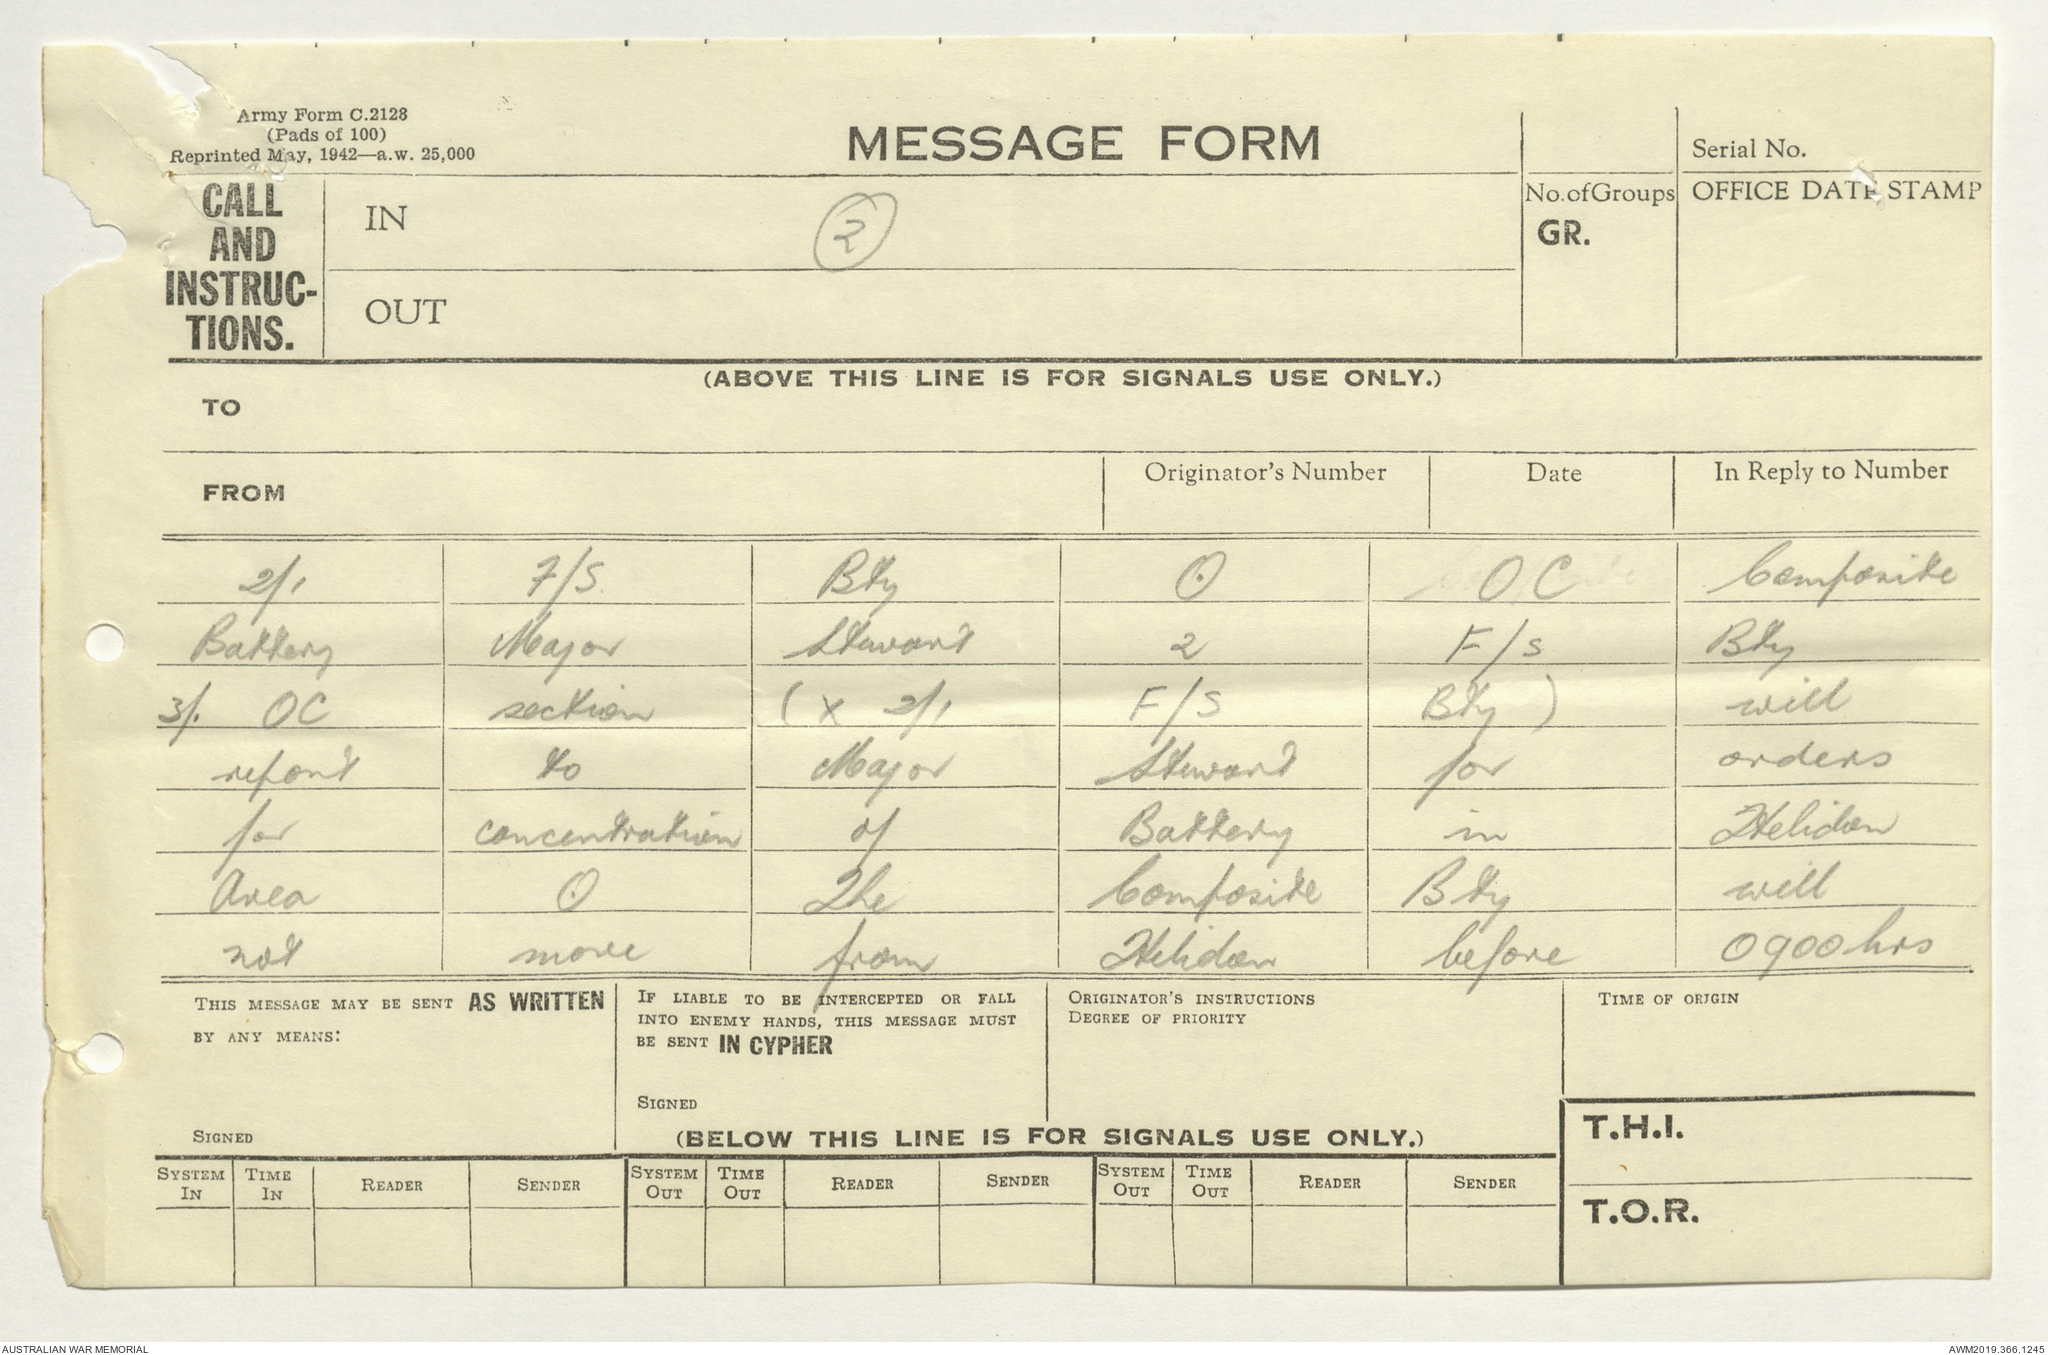 Army Form C.2128
(Pads of 100)
Reprinted May, 1942—a.w. 25,000
MESSAGE FORM
Serial No.
CALL
AND
INSTRUC-
TIONS.
IN
2
No. of Groups
GR.
OFFICE DATE STAMP
OUT
(ABOVE THIS LINE IS FOR SIGNALS USE ONLY.)
TO
FROM
Originator's Number
Date
In Reply to Number
2/1 F/S. Bty O OC Composite
Battery Major Stewart 2 F/S Bty
3/. OC section (X 2/1 F/S Bty) will
report to Major Stewart for orders
for concentration of Battery in Helidon
Area O The Composite Bty will
not move from Helidon before 0900 hrs
THIS MESSAGE MAY BE SENT AS WRITTEN
BY ANY MEANS:
SIGNED
IF LIABLE TO BE INTERCEPTED OR FALL
INTO ENEMY HANDS, THIS MESSAGE MUST
BE SENT IN CYPHER
SIGNED
ORIGINATOR'S INSTRUCTIONS
DEGREE OF PRIORITY
TIME OF ORIGIN
(BELOW THIS LINE IS FOR SIGNALS USE ONLY.)
T.H.I.
T.O.R.
SYSTEM IN TIME IN READER SENDER SYSTEM OUT TIME OUT READER SENDER SYSTEM OUT TIME OUT READER SENDER
AUSTRALIAN WAR MEMORIAL
AWM2019.366.1245